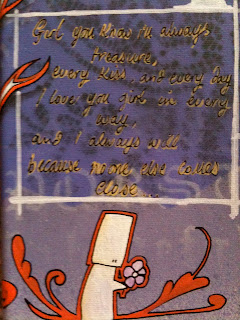 Girl you know I'll always
treasure,
every kiss, and every day
I love you girl in every
way,
and I always will
because no one else comes
close...